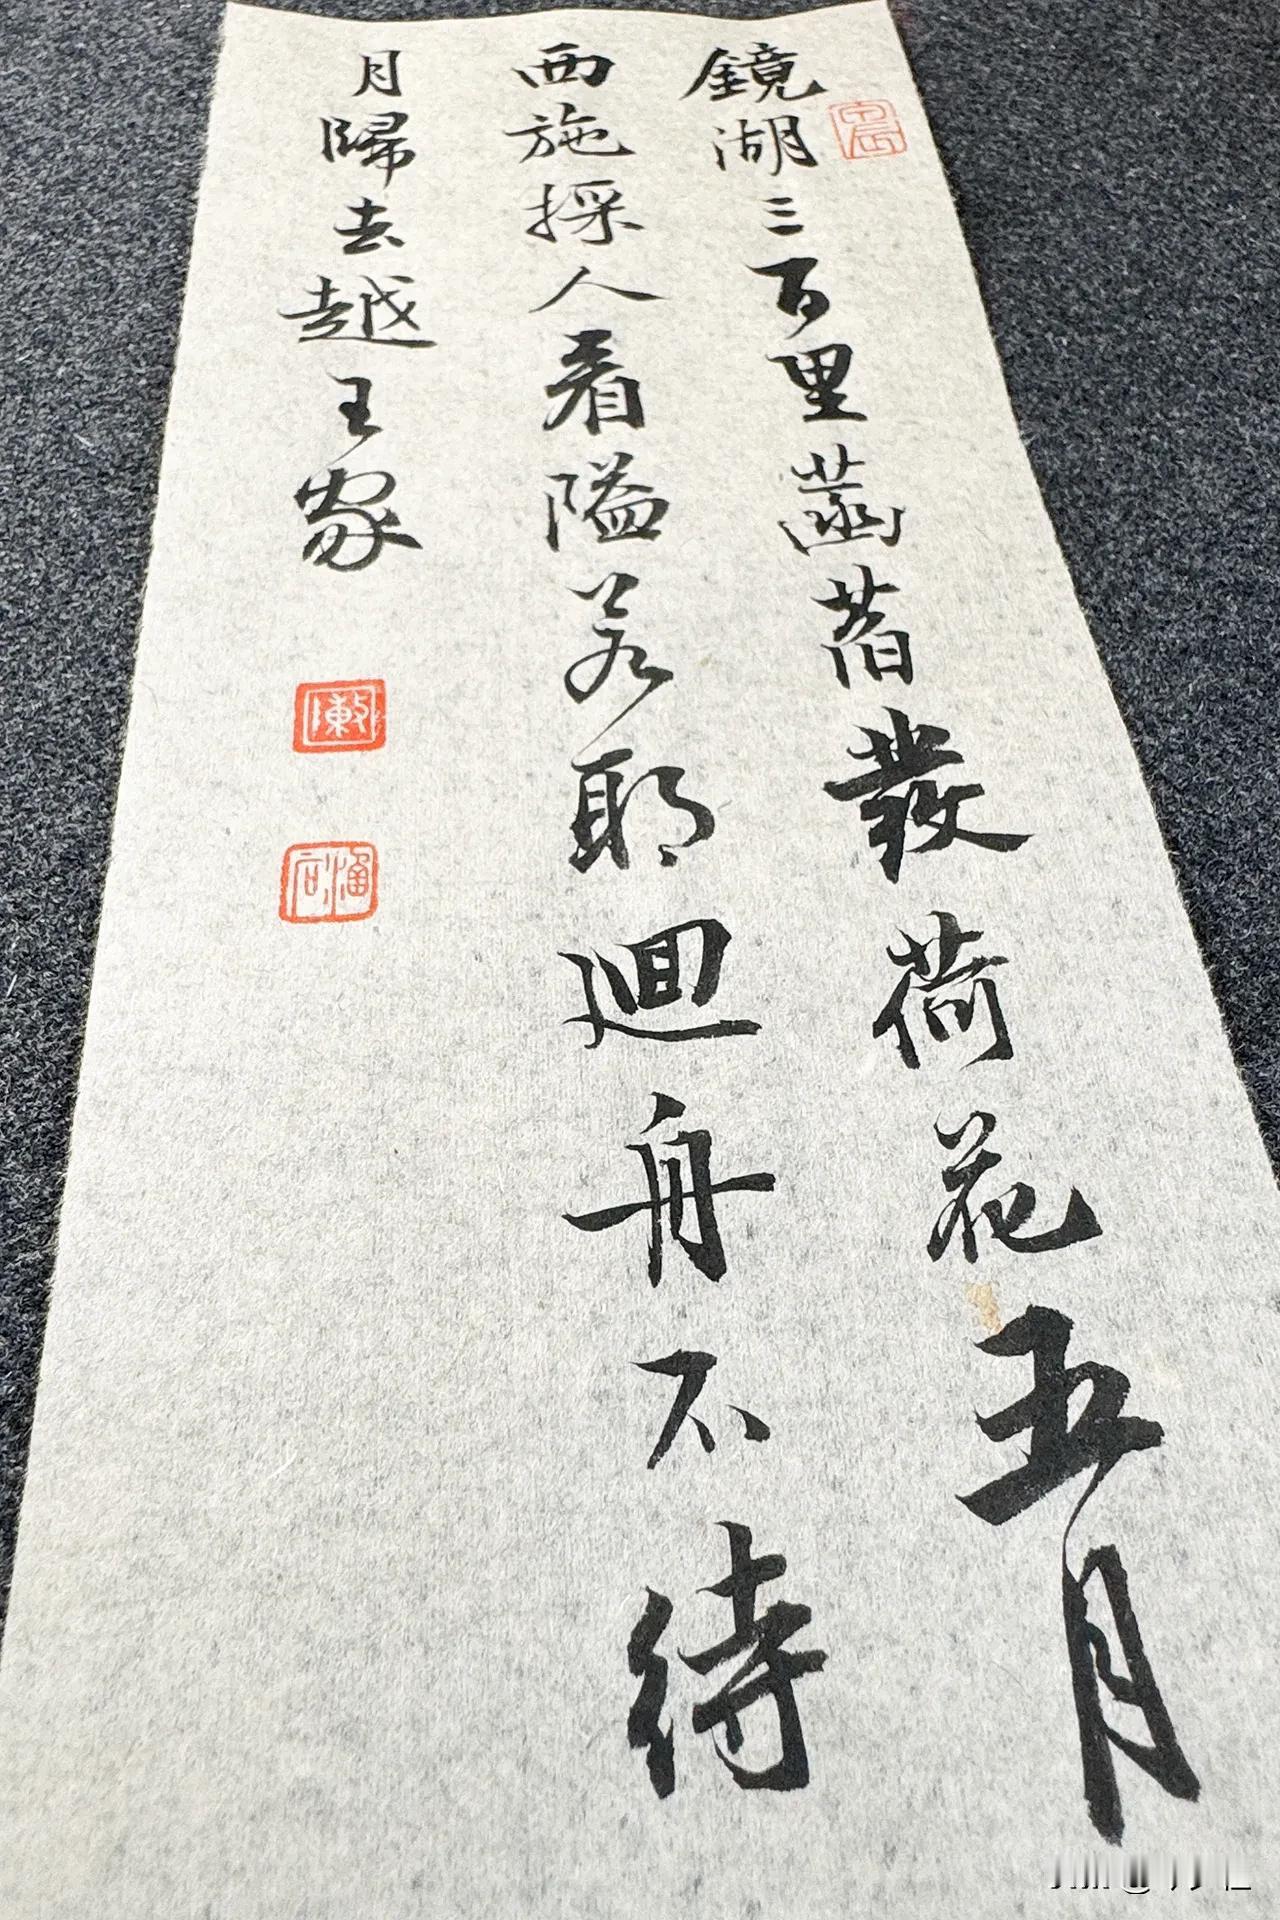 鏡湖三百里菡萏發荷花五月
西施採人看隘若耶迴舟不待
月歸去越王家